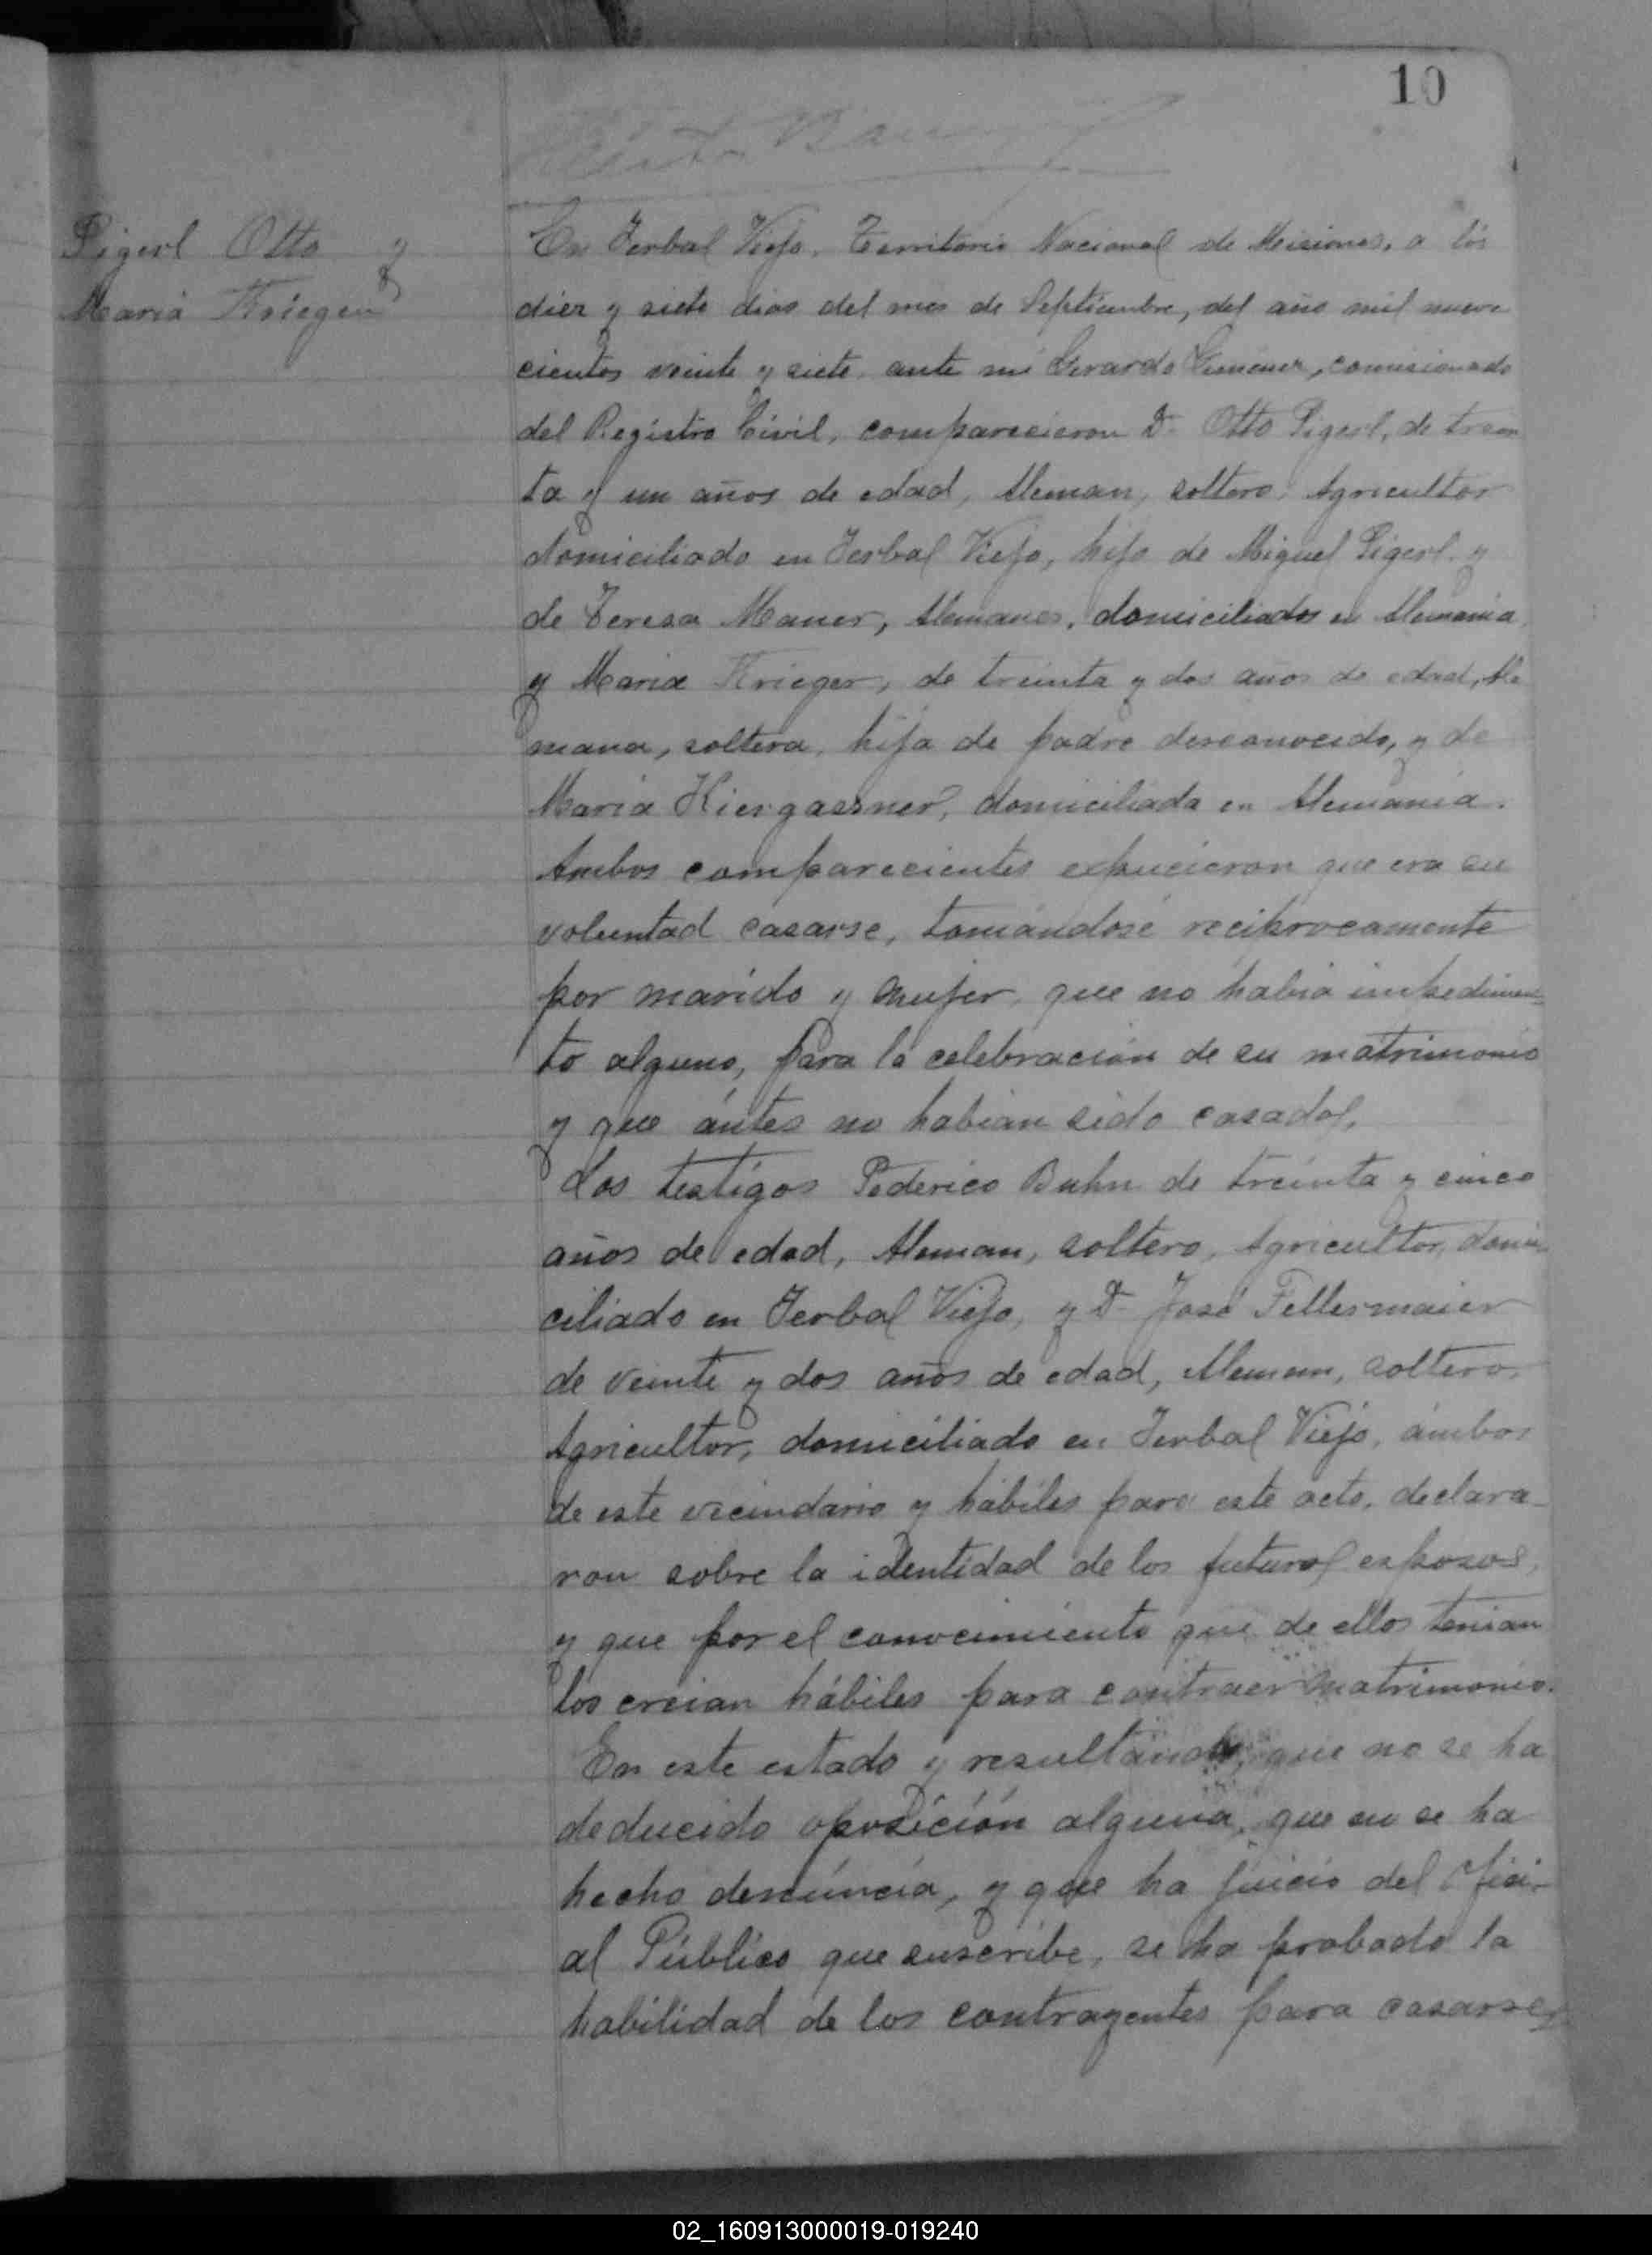 10
Pigerl Otto y
Maria Krieger
En Yerbal Viejo, Territorio Nacional de Misiones, a los
diez y siete dias del mes de Septiembre, del año mil nueve
cientos veinte y siete, ante mi Gerardo Gimenez, comisionado
del Registro Civil, comparecieron D. Otto Pigerl, de trein
ta y un años de edad, Aleman, soltero, Agricultor
domiciliado en Yerbal Viejo, hijo de Miguel Pigerl y
de Teresa Maner, Alemanes, domiciliados en Alemania,
y Maria Krieger, de treinta y dos años de edad, Ale
mana, soltera, hija de padre desconocido, y de
Maria Hiergassner, domiciliada en Alemania.
Ambos comparecientes expucieron que era su
voluntad casarse, tomándose recibrocamente
por marido y mujer, que no habia impedimen-
to alguno, para la celebración de su matrimonio
y que ántes no habian sido casados,
Los testigos Federico Buhn de treinta y cinco
años de edad, Aleman, soltero, Agricultor, domi-
ciliado en Yerbal Viejo, y D. José Fellermaier
de veinte y dos años de edad, Aleman, soltero,
Agricultor, domiciliado en Yerbal Viejo, ámbos
de este vecindario y hábiles para este acto, declara-
ron sobre la identidad de los futuros esposos,
y que por el conocimiento que de ellos tenian
los creian hábiles para contraer matrimonio.
En este estado y resultando, que no se ha
deducido oposición alguna, que no se ha
hecho denúncia, y que ha juicio del Ofici-
al Público que suscribe, se ha probado la
habilidad de los contrayentes para casarse,
02_160913000019-019240